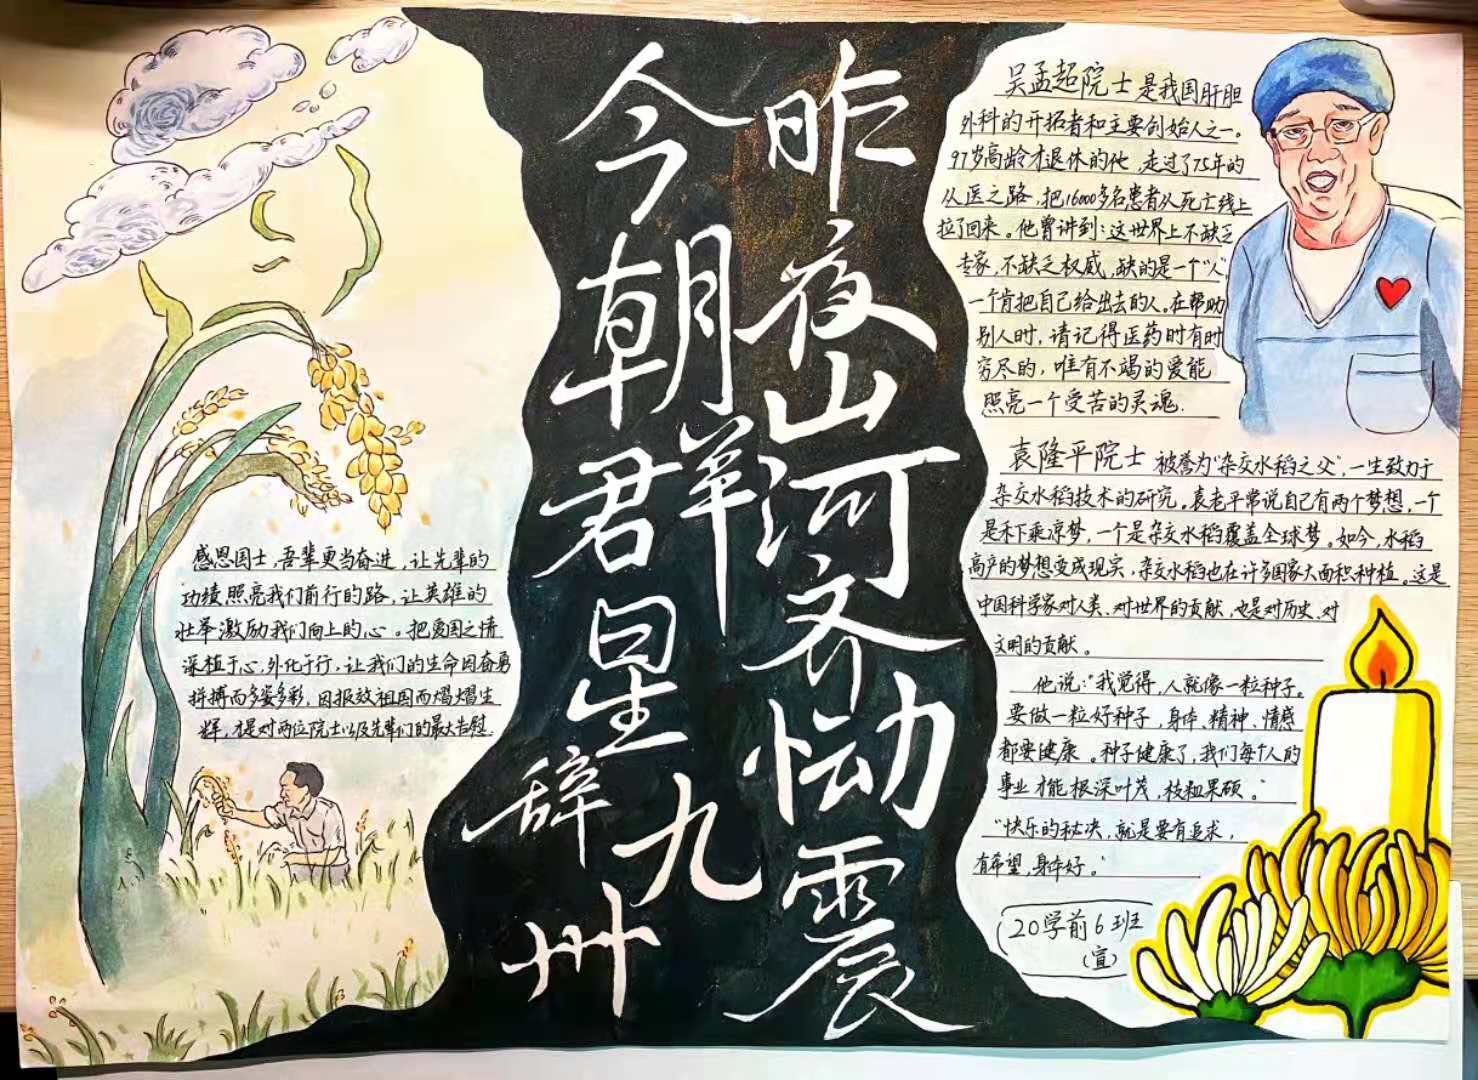 昨夜山河齐恸震
今朝群君星辞九州
吴孟超院士是我国肝胆
外科的开拓者和主要创始人之一。
97岁高龄才退休的他,走过了75年的
从医之路,把16000多名患者从死亡线上
拉了回来。他曾讲到:这世界上不缺乏
专家,不缺乏权威,缺的是一个"人"
一个肯把自己给出去的人。在帮助
别人时,请记得医药时有时
穷尽的,唯有不竭的爱能
照亮一个受苦的灵魂.
袁隆平院士被誉为"杂交水稻之父",一生致力于
杂交水稻技术的研究。袁老平常说自己有两个梦想,一个
是禾下乘凉梦,一个是杂交水稻覆盖全球梦。如今,水稻
高产的梦想变成现实,杂交水稻也在许多国家大面积种植。这是
中国科学家对人类、对世界的贡献,也是对历史、对
文明的贡献。
他说:"我觉得,人就像一粒种子。
要做一粒好种子,身体、精神、情感
都要健康。种子健康了,我们每个人的
事业才能根深叶茂,枝粗果硕。"
"快乐的秘决,就是要有追求,
有希望,身体好。"
20学前6班
(宣)
感恩国士,吾辈更当奋进,让先辈的
功绩照亮我们前行的路,让英雄的
壮举激励我们向上的心。把爱国之情
深植于心,外化于行,让我们的生命因奋勇
拼搏而多姿多彩,因报效祖国而熠熠生
辉,才是对两位院士以及先辈们的最大告慰.